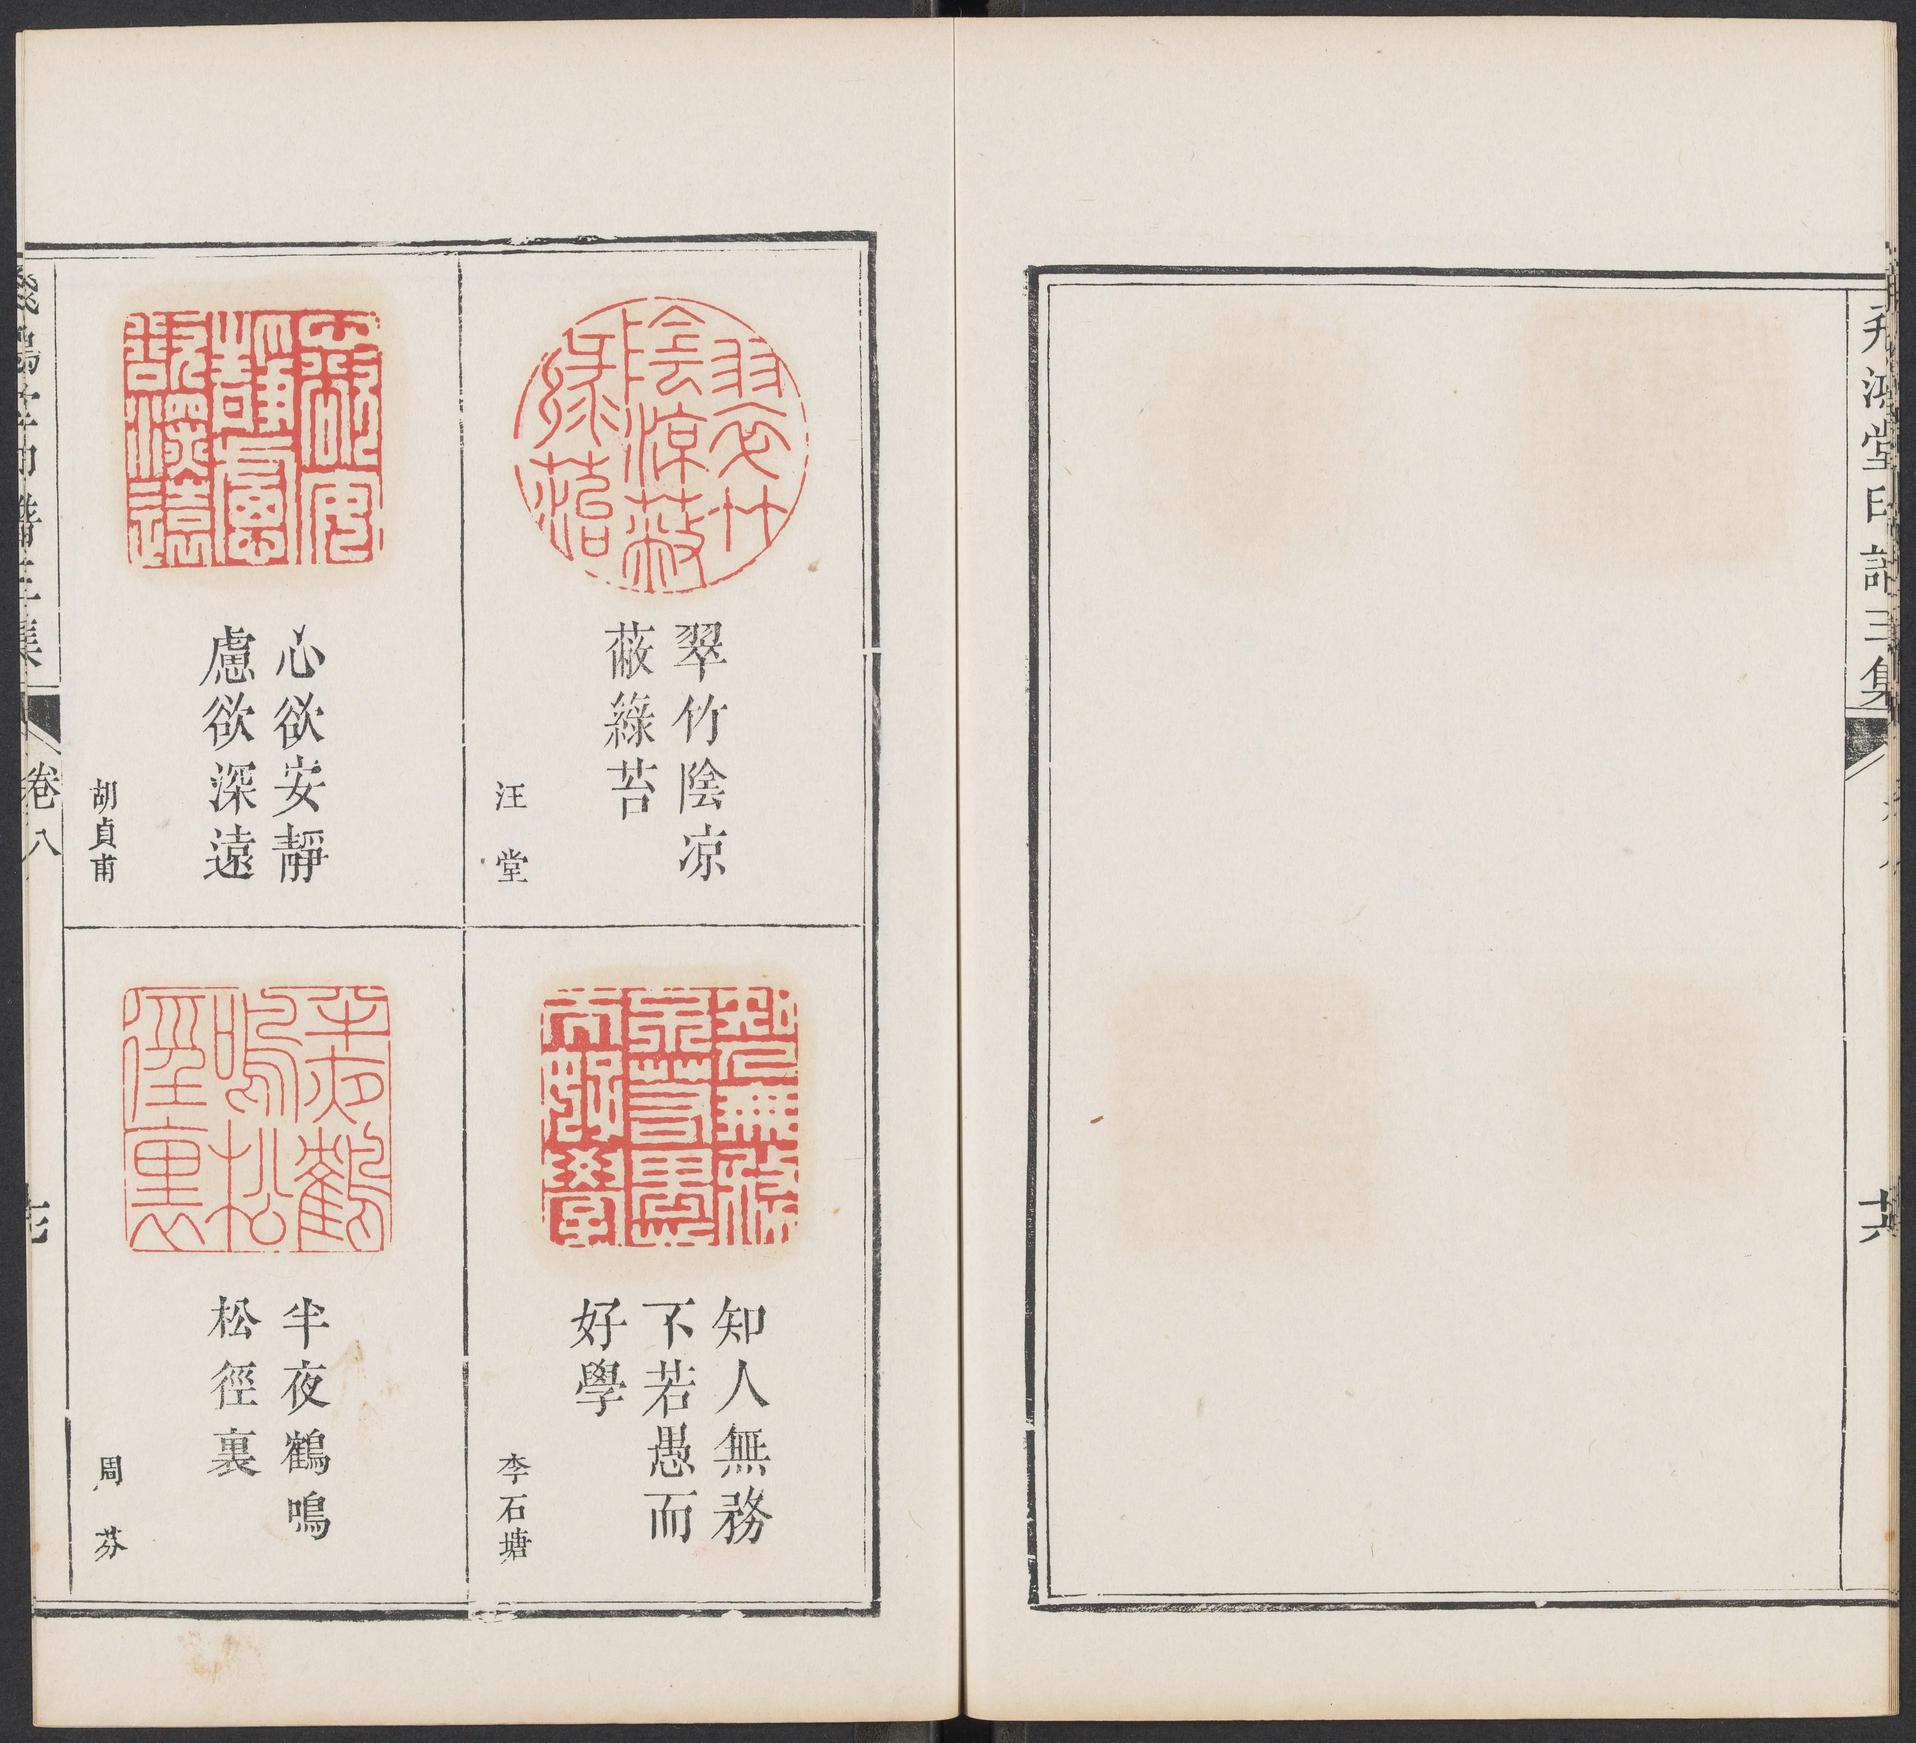 飛鴻堂印譜三集
翠竹陰凉
蔽綠苔
汪堂
知人無務
不若愚而
好學
李石塘
心欲安靜
慮欲深遠
胡貞甫
半夜鶴鳴
松徑裏
周芬
卷八